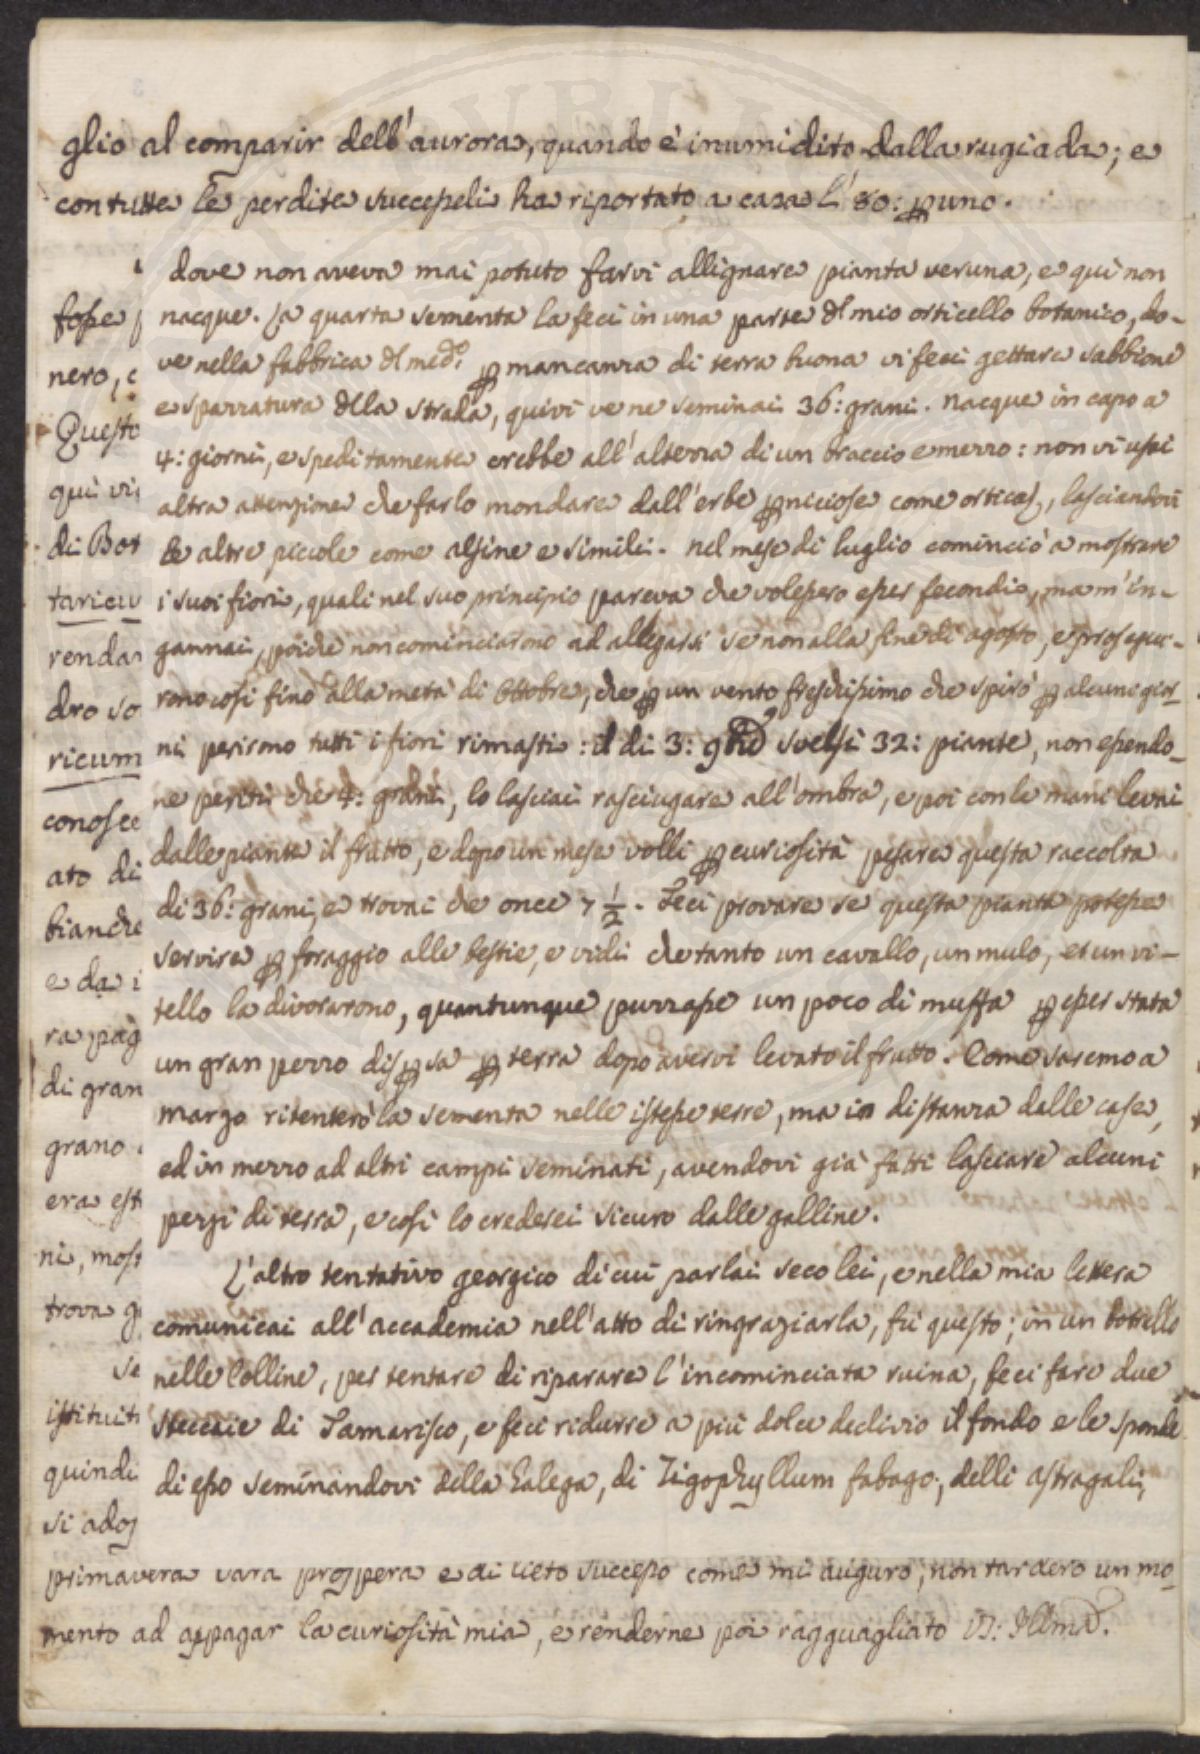 glio al comparir dell'aurora, quando è inumidito dalla rugiada; e
con tutte le perdite successeli ha riportato a casa l'80: p uno.
dove non aveva mai potuto farvi allignare pianta veruna, e quì non
fosse
nacque. La quarta sementa la feci in una parte dl mio orticello botanico, do-
nero,
ve nella fabbrica dl med.o p mancanza di terra buona vi feci gettare sabbione
e spazzatura dlla strada, quivi ve ne seminai 36: grani. nacque in capo a
Questo
4: giorni, e speditamente crebbe all'altezza di un braccio e mezzo: non vi usai
qui vi
altra attenzione che farlo mondare dall'erbe pniciose come ortica, lasciandovi
di Bot
le altre piccole come alsine e simili. nel mese di luglio cominciò a mostrare
taricu
i suoi fiori, quali nel suo principio pareva che volessero esser fecondi, ma m'in-
rendar
gannai, poichè non cominciarono ad allegarsi se non alla fine di agosto, e prosegui-
dro so
rono così fino alla metà di Ottobre, che p un vento freschissimo che spirò p alcuni gior-
ricum
ni perirono tutti i fiori rimasti: il di 3: 9bre svelsi 32: piante, non essendo-
ne periti che 4: grani, lo lasciai rasciugare all'ombra, e poi con le mani levai
conosce
dalle piante il frutto, e dopo un mese volli p curiosità pesare questa raccolta
ato di
di 36: grani, e trovai che once 7 1/2. Feci provare se questa pianta potesse
bianche
servire p foraggio alle bestie, e vidi che tanto un cavallo, un mulo, et un vi-
e da i
tello la divorarono, quantunque puzzasse un poco di muffa p esser stata
ra pag
un gran pezzo dispsa p terra dopo avervi levato il frutto. Come saremo a
di gran
marzo ritenterò la sementa nelle istesse terre, ma in distanza dalle case,
grano
ed in mezzo ad altri campi seminati, avendovi già fatti lasciare alcuni
era est
pezzi di terra, e così lo crederei sicuro dalle galline.
ni, most
L'altro tentativo georgico di cui parlai seco lei, e nella mia lettera
trova g
comunicai all'accademia nell'atto di ringraziarla, fù questo; in un botrello
se
nelle Colline, per tentare di riparare l'incominciata ruina, feci fare due
istituiti
steccaie di Tamarisco, e feci ridurre a più dolce declivio il fondo e le sponde
quindi
di esso seminandovi della Galega, di Zigophyllum fabago, delli astragali,
si adop
primavera sara prospera e di lieto successo come mi auguro, non tarderò un mo-
mento ad appagar la curiosità mia, e renderne poi ragguagliato V: Illma.